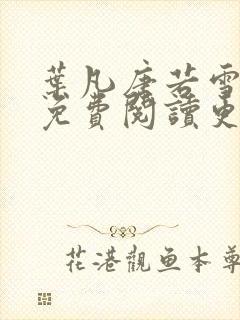 葉凡唐若雪
免費閱讀更
花港觀魚本尊